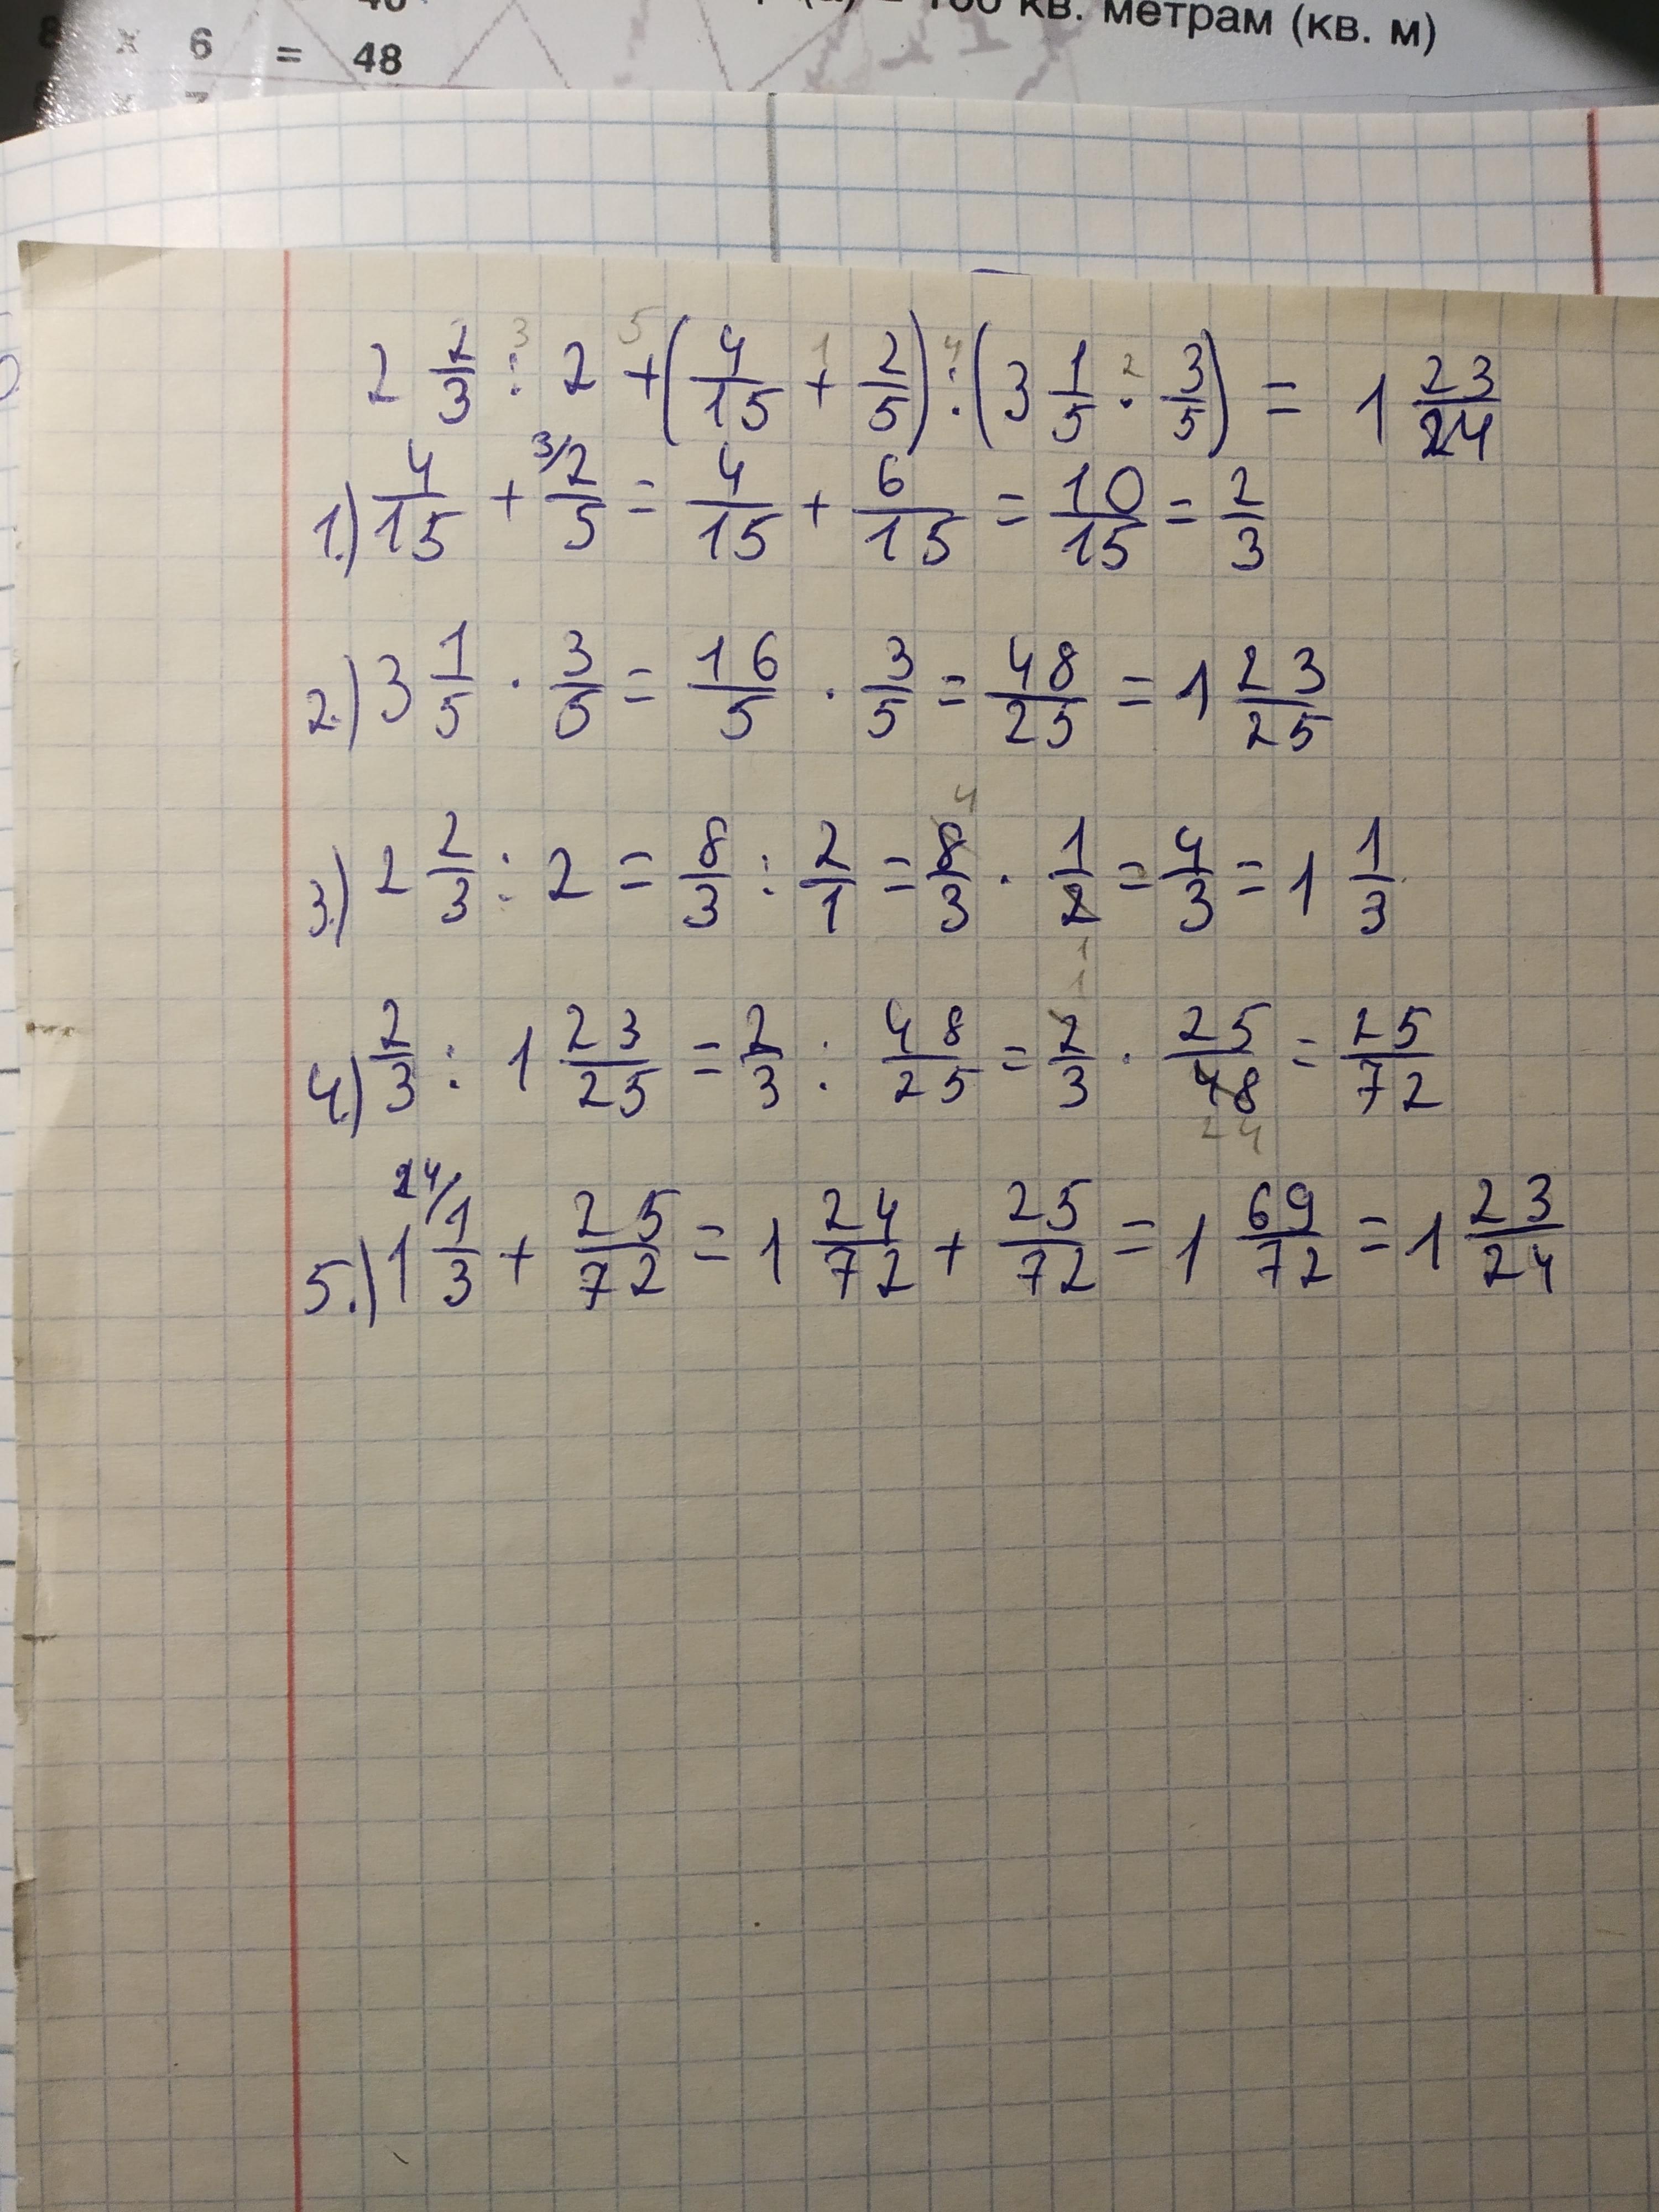 40
8 x 6 = 48
x 7
(а) = 100 кв. метрам (кв. м)
2 2/3 : 2 + (4/15 + 2/5) : (3 1/5 · 3/5) = 1 23/24
3 5 1 4 2
1.) 4/15 + 3/ 2/5 = 4/15 + 6/15 = 10/15 = 2/3
2.) 3 1/5 · 3/5 = 16/5 · 3/5 = 48/25 = 1 23/25
4
3.) 2 2/3 : 2 = 8/3 : 2/1 = 8/3 · 1/2 = 4/3 = 1 1/3
1
1
4.) 2/3 : 1 23/25 = 2/3 : 48/25 = 2/3 · 25/48 = 25/72
24
5.) 1 24/ 1/3 + 25/72 = 1 24/72 + 25/72 = 1 69/72 = 1 23/24